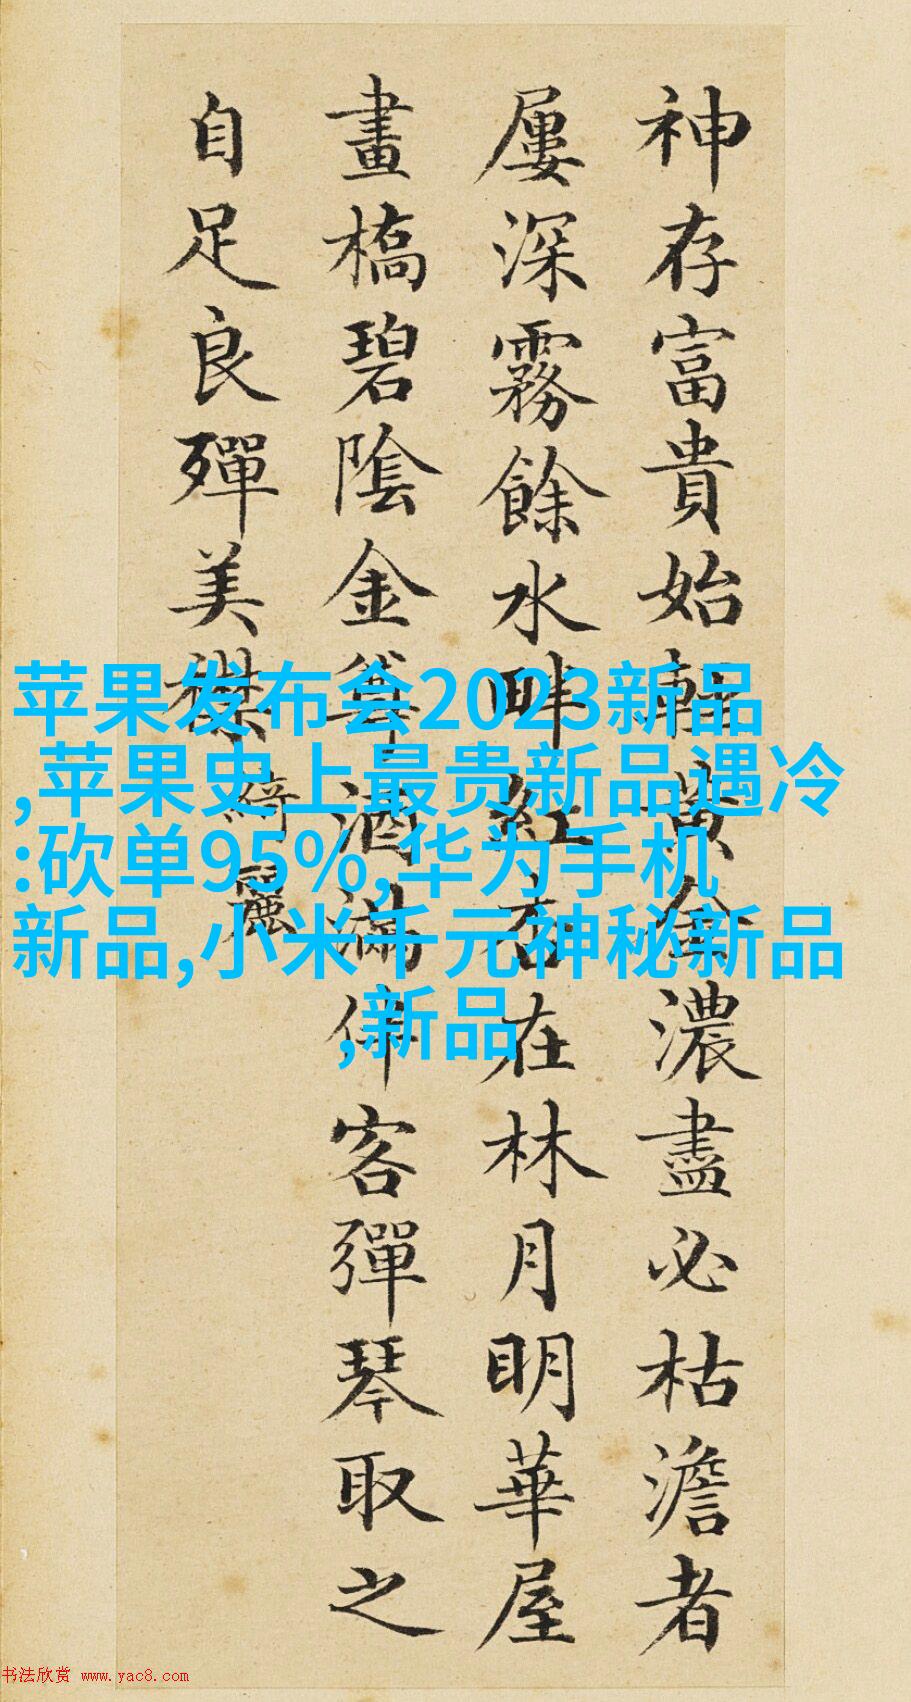 神存富貴始輕黃金濃盡必枯澹者
屢深霧餘水畔紅杏在林月明華屋
畫橋碧陰金尊酒滿伴客彈琴取之
自足良殫美襟
綺麗
苹果发布会2023新品
,苹果史上最贵新品遇冷
:砍单95%,华为手机
新品,小米千元神秘新品
,新品
书法欣赏 www.yac8.com